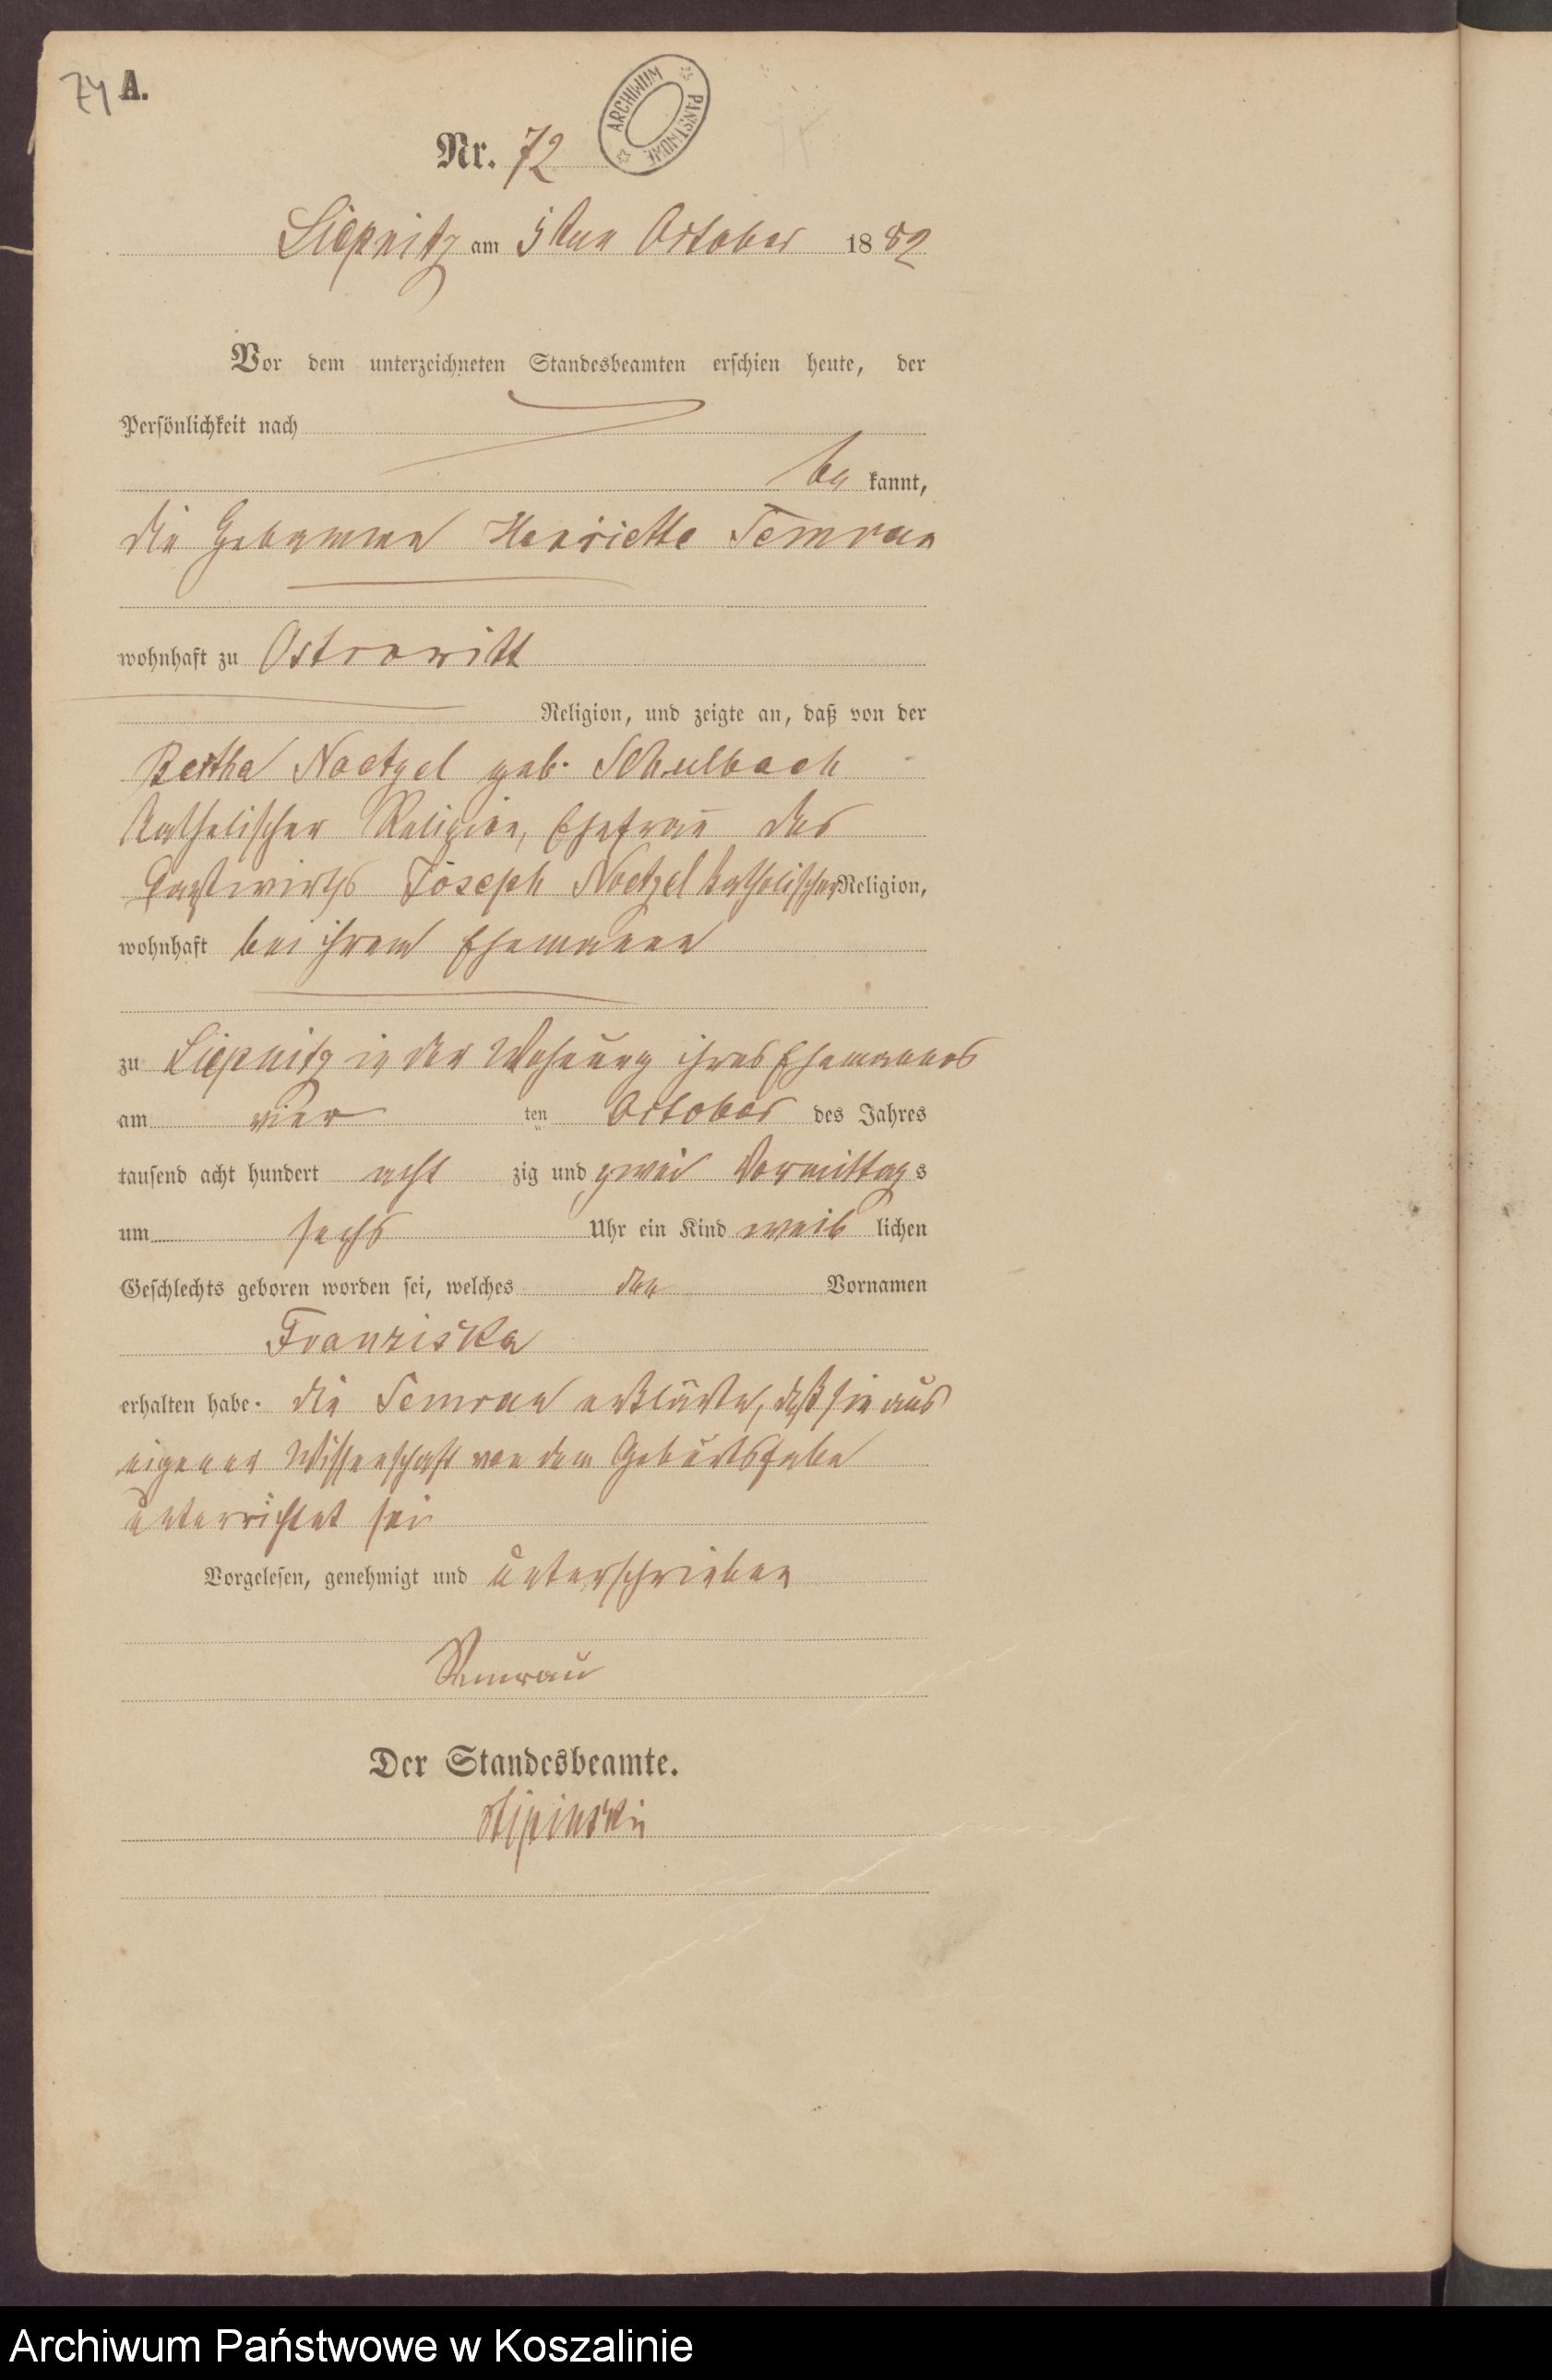 74 A.
ARCHIWUM PAŃSTWOWE
Nr. 72
Liepnitz am 5ten October 1882
Vor dem unterzeichneten Standesbeamten erschien heute, der
Persönlichkeit nach
be kannt,
die Hebamme Henriette Semrau
wohnhaft zu Ostrowitt
Religion, und zeigte an, daß von der
Bertha Noetzel geb. Schulbach
katholischer Religion, Ehefrau des
Gastwirths Joseph Noetzel katholischer Religion,
wohnhaft bei ihrem Ehemanne
zu Liepnitz in der Wohnung ihres Ehemannes
am vier ten October des Jahres
tausend acht hundert acht zig und zwei Vormittags
um sechs Uhr ein Kind weib lichen
Geschlechts geboren worden sei, welches den Vornamen
Franziska
erhalten habe. die Semrau erklärte, daß sie aus
eigener Wissenschaft von dem Geburtsfalle
unterrichtet sei
Vorgelesen, genehmigt und unterschrieben
Semrau
Der Standesbeamte.
Archiwum Państwowe w Koszalinie